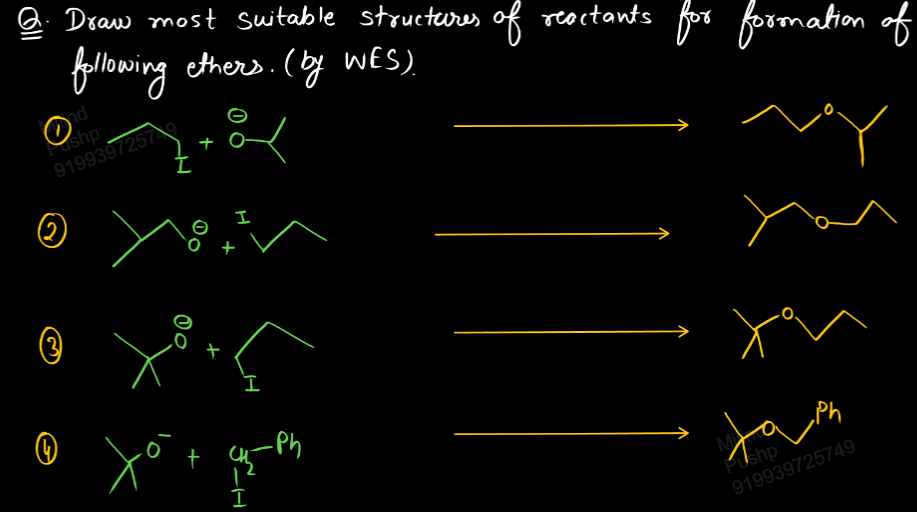 Q. Draw most suitable structures of reactants for formation of
following ethers. (by WES).
① I + O⊖ → O
② O⊖ + I → O
③ O⊖ + I → O
④ O⁻ + CH₂-Ph I → O Ph
Milind
Pushp
919939725749
Milind
Pushp
919939725749